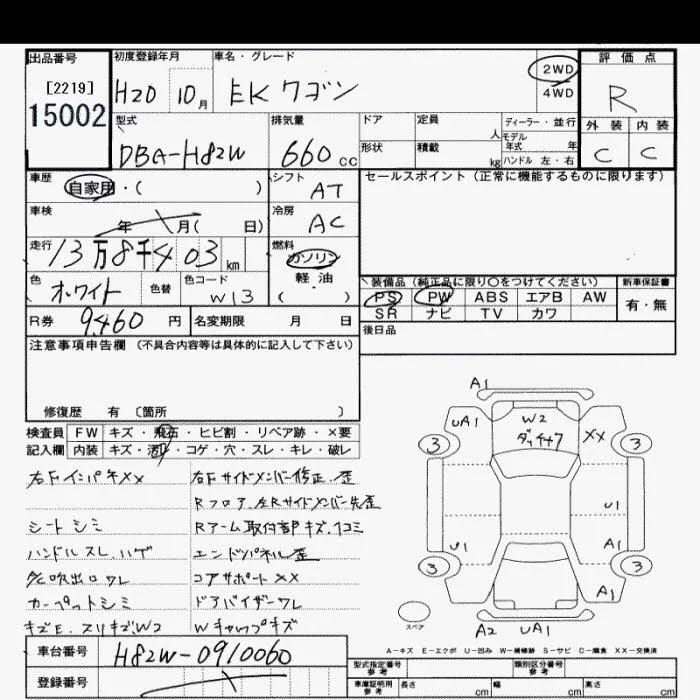 出品番号 初度登録年月 車名・グレード 2WD 評価点
[2219] H20 10月 EKワゴン 4WD R
15002 型式 排気量 ドア 定員 人 ディーラー・並行 外装 内装
DBA-H82W 660cc 形状 積載 kg モデル年式 年 ハンドル 左・右 C C
車歴 自家用・( ) シフト AT セールスポイント(正常に機能するものに限ります)
車検 年 月( 日) 冷房 AC
走行 13万8千403km 燃料 ガソリン
軽・油
色 ホワイト 色替 色コード W13 ( ) 装備品(純正品に限り○をつけてください) 新車保証書
PS PW ABS エアB AW 有・無
SR ナビ TV カワ
R券 9460円 名変期限 月 日 後日品
注意事項申告欄(不具合内容等は具体的に記入して下さい)
修復歴 有 〔箇所 〕
検査員 FW キズ・飛石・ヒビ割・リペア跡・×要
記入欄 内装 キズ・汚・コゲ・穴・スレ・キレ・破レ
右FインパネXX 右Fサイドメンバー修正.歪
Rフロア.左Rサイドメンバー先歪
シートシミ Rアーム取付部キズ.凹コミ
ハンドルスレ.ハゲ エンドパネル歪
吹出口ワレ コアサポートXX
カーペットシミ ドアバイザーワレ
キズE.スリキズW2 Wキャップキズ
A1
UA1 W2 XX
3 3
U1
U1 A1
3 3
A1
スペア
A2 UA1
A-キズ E-エクボ U-凹み W-補修跡 S-サビ C-腐食 XX-交換済
車台番号 H82W-0910060
登録番号
型式指定番号 参考 類別区分番号 参考
車庫証明用 参考 長さ cm 幅 cm 高さ cm